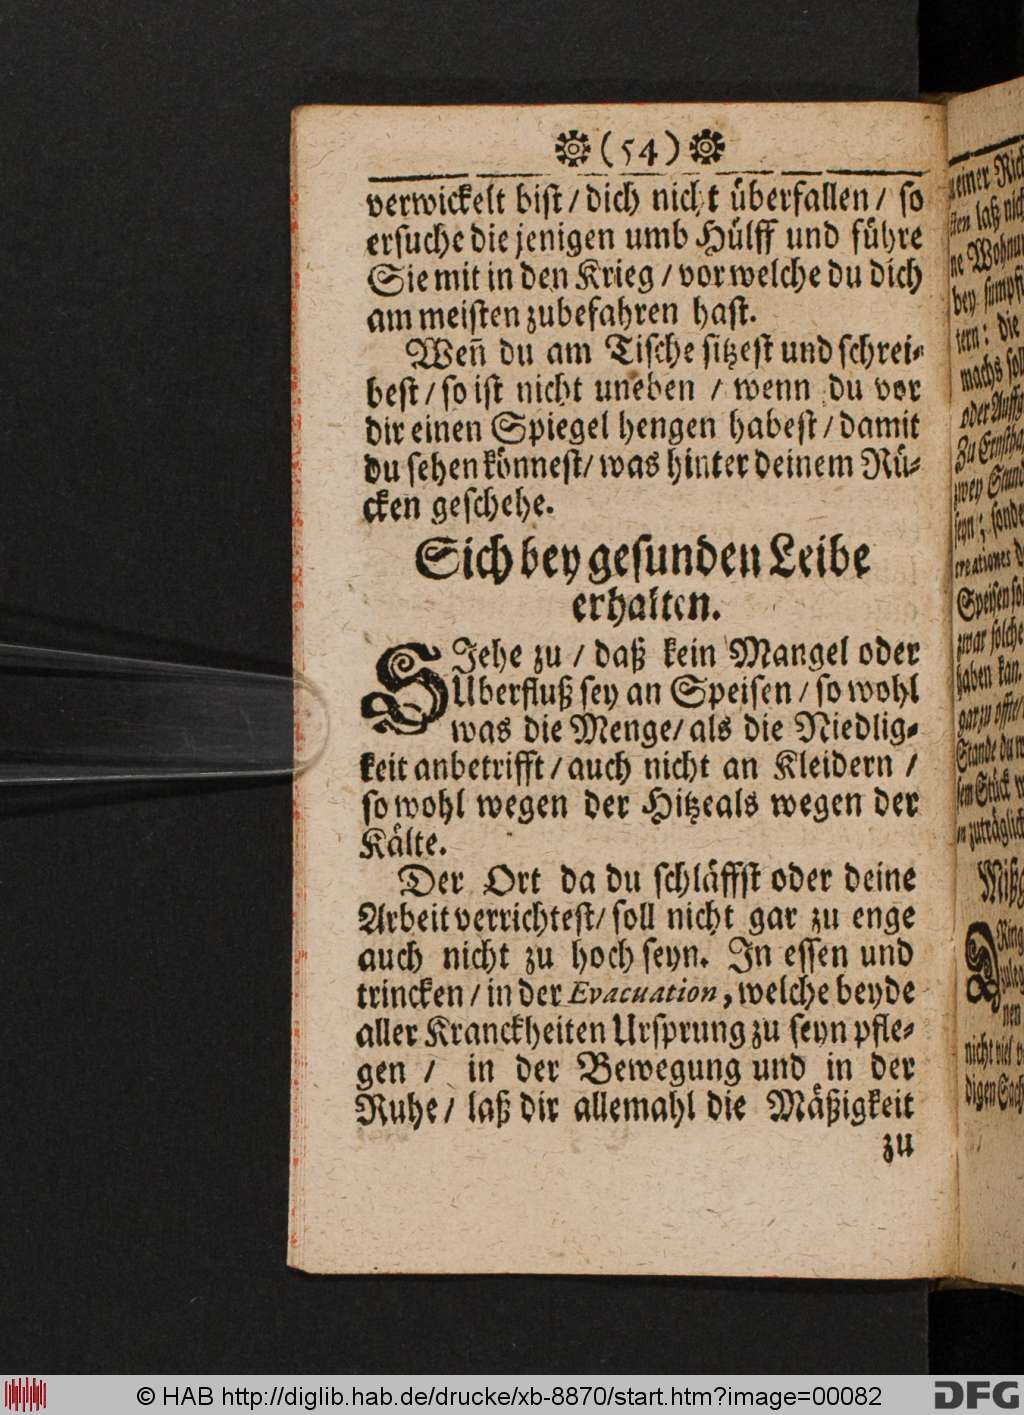 (54)
verwickelt bist / dich nicht überfallen / so
ersuche die jenigen umb Hülff und führe
Sie mit in den Krieg / vor welche du dich
am meisten zubefahren hast.
Weñ du am Tische sitzest und schrei-
best / so ist nicht uneben / wenn du vor
dir einen Spiegel hengen habest / damit
du sehen könnest / was hinter deinem Rü-
cken geschehe.
Sich bey gesunden Leibe
erhalten.
SIehe zu / daß kein Mangel oder
Uberfluß sey an Speisen / so wohl
was die Menge / als die Niedlig-
keit anbetrifft / auch nicht an Kleidern /
so wohl wegen der Hitze als wegen der
Kälte.
Der Ort da du schläffst oder deine
Arbeit verrichtest / soll nicht gar zu enge
auch nicht zu hoch seyn. In essen und
trincken / in der Evacuation, welche beyde
aller Kranckheiten Ursprung zu seyn pfle-
gen / in der Bewegung und in der
Ruhe / laß dir allemahl die Mäßigkeit
zu
© HAB http://diglib.hab.de/drucke/xb-8870/start.htm?image=00082
DFG